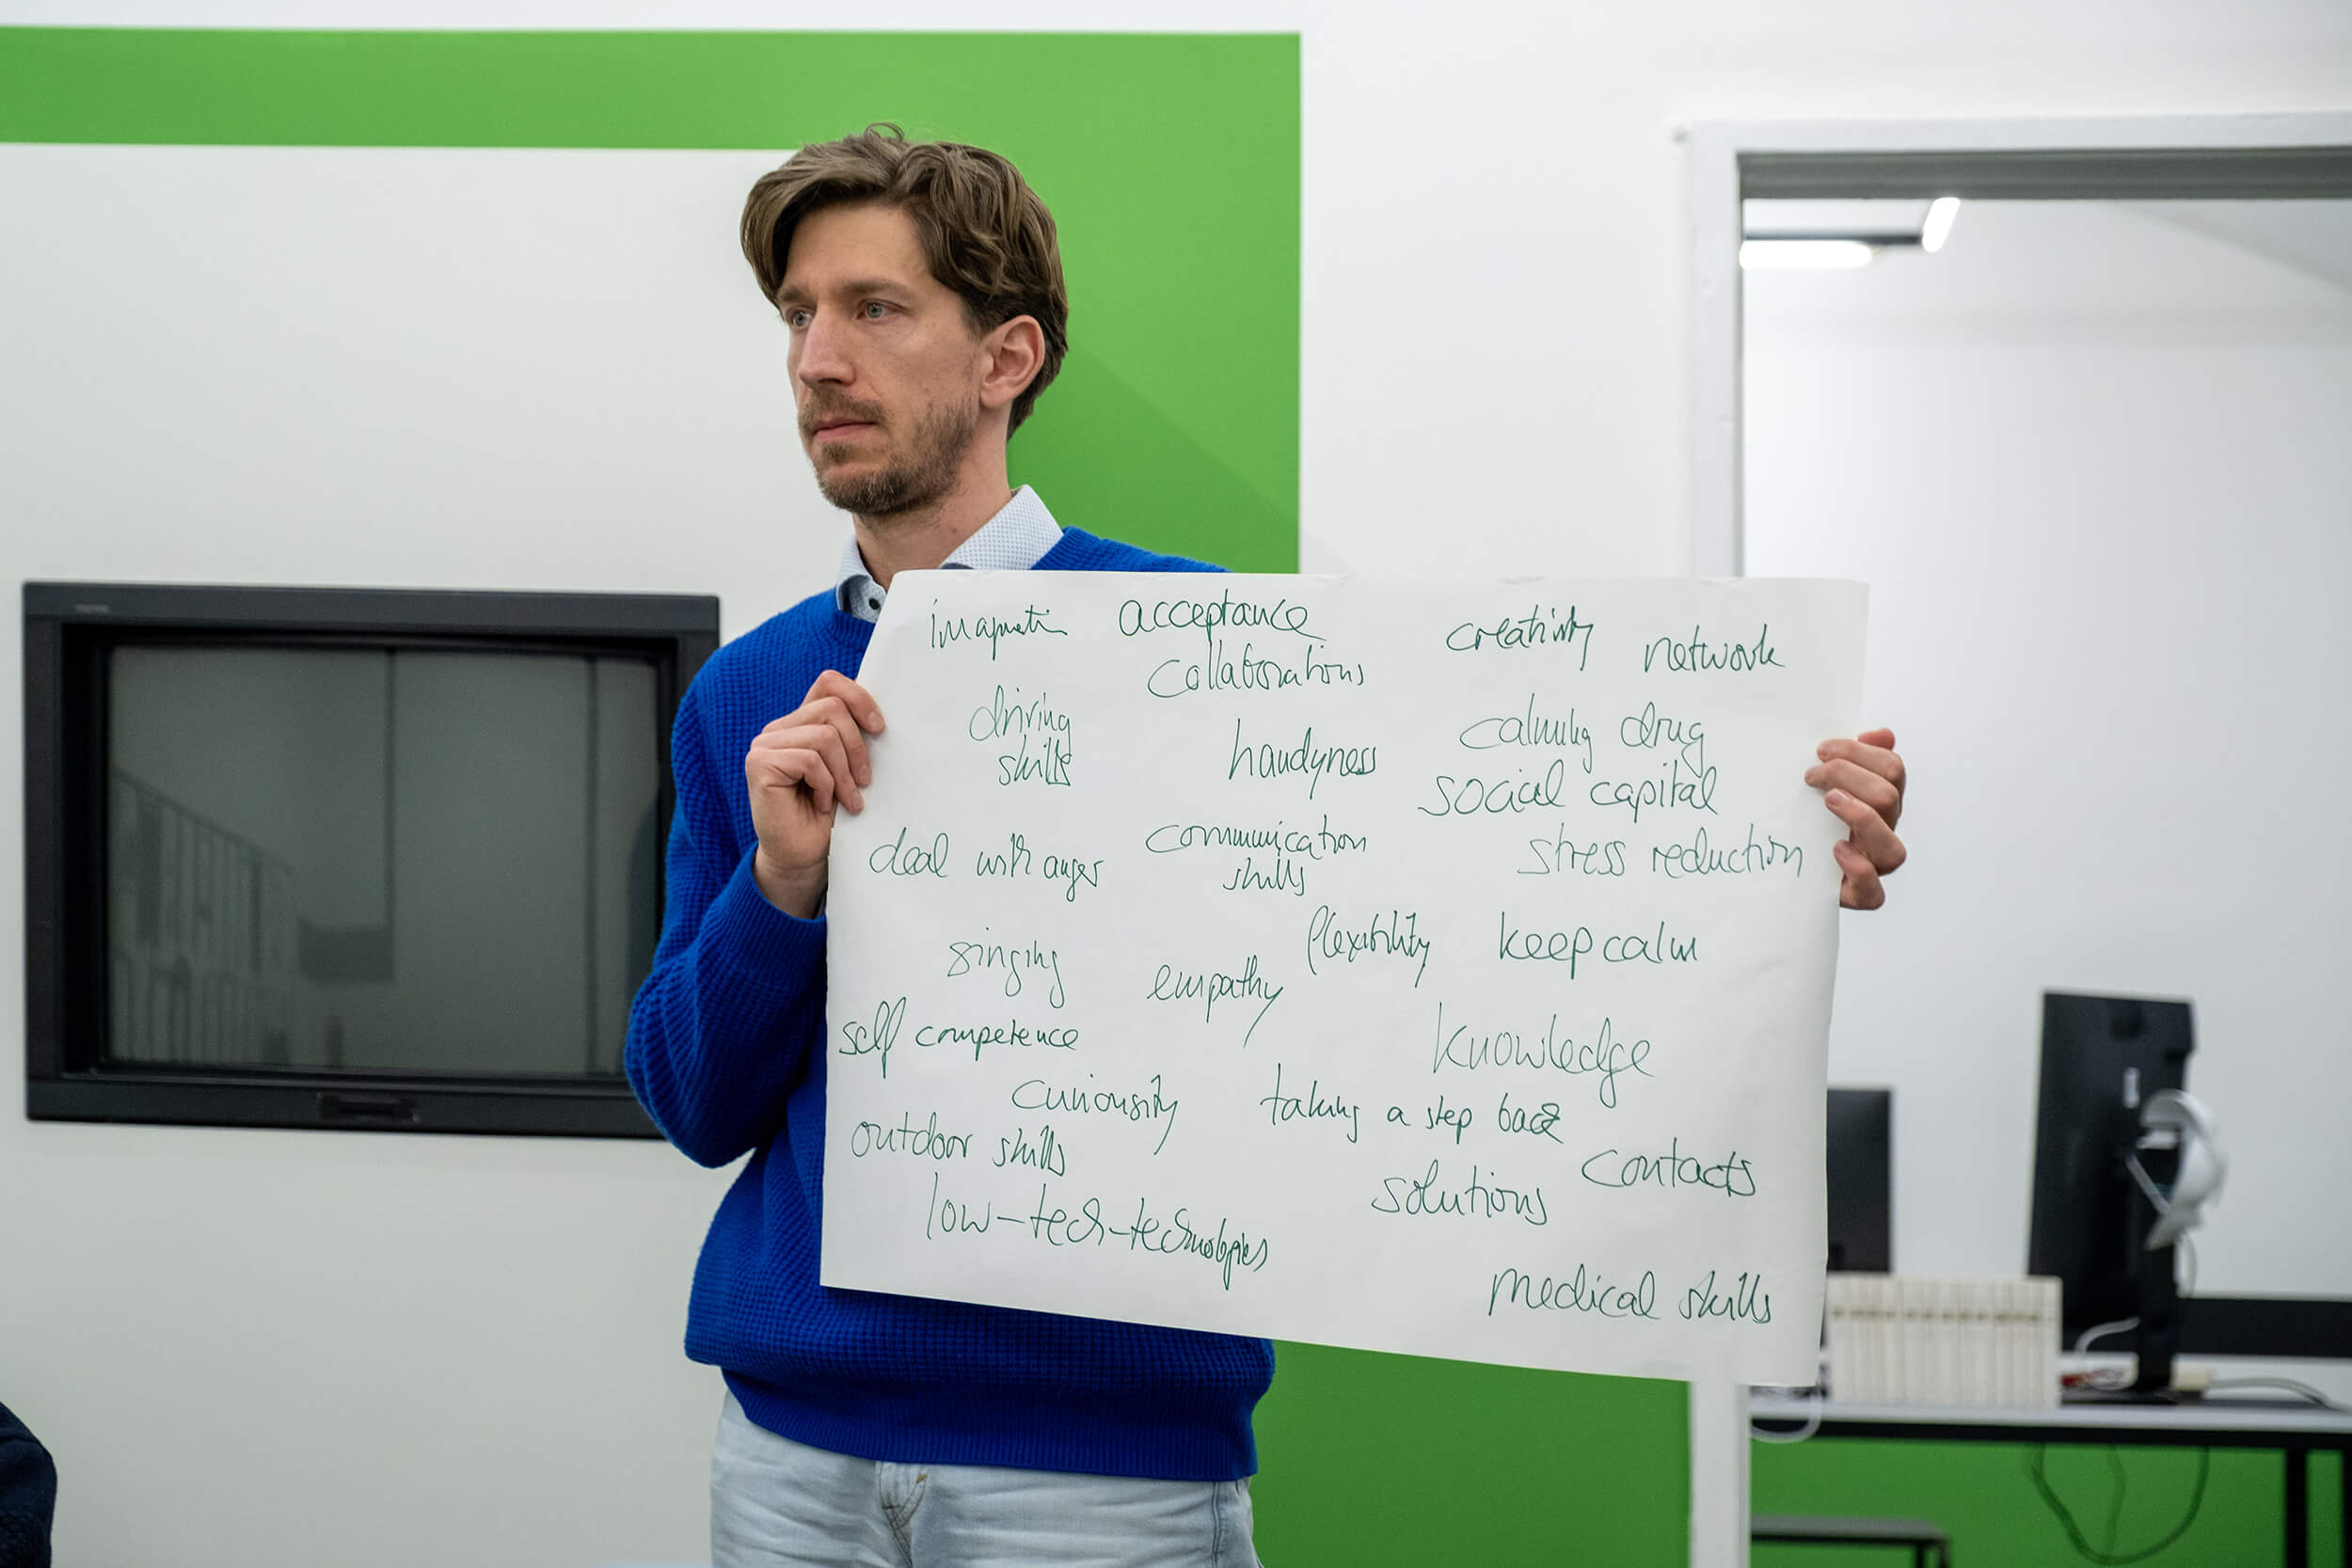 imagination
acceptance
creativity
network
collaborations
driving
skills
handyness
calming drug
social capital
deal with anger
communication
skills
stress reduction
singing
empathy
flexibility
keep calm
self competence
knowledge
curiousity
taking a step back
outdoor skills
contacts
solutions
low-tech-technologies
medical skills